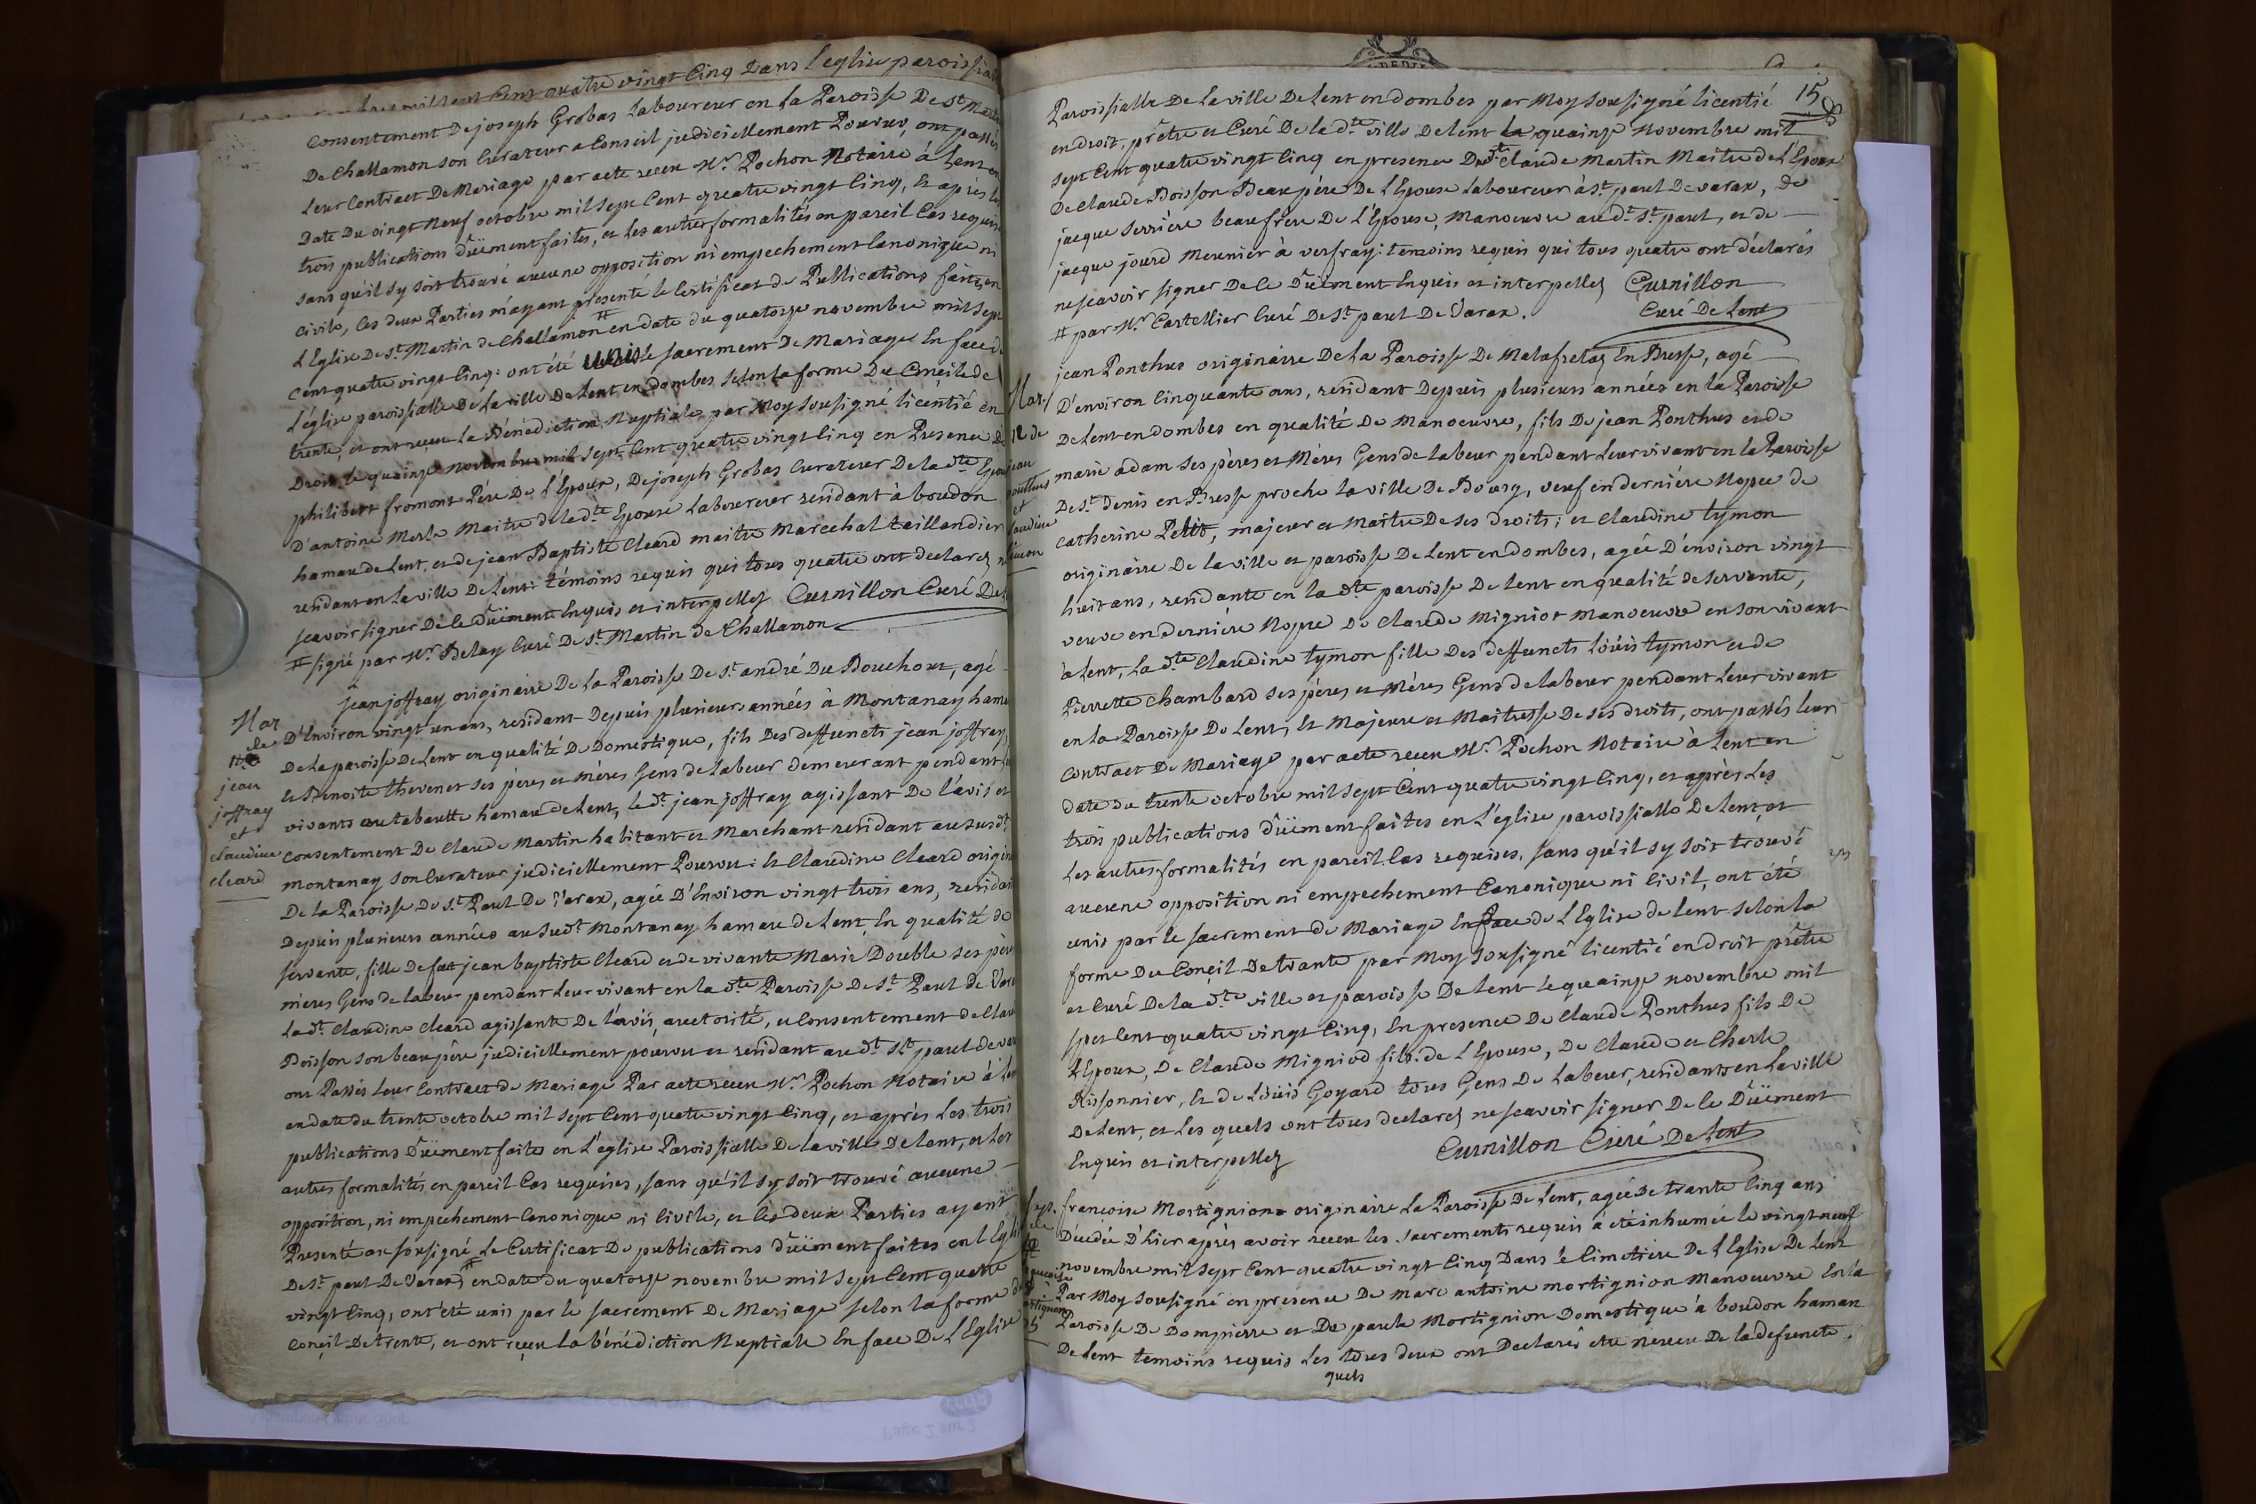 mil sept Cent quatre vingt Cinq Dans l'eglise paroissia
Consentement De joseph Grobas Laboureur en La Paroisse De St. Martin
De Challamon son Curateur a Conseil judiciellement Pourvu, ont passés
Leur Contract De Mariage par acte receu Mr. Pochon Notaire à Lent en
Date Du vingt Neuf octobre mil sept Cent quatre vingt Cinq, Et après les
trois publications düement faites, et Les autres formalités en pareil Cas requises
sans qu'il sy soit trouvé aucune opposition ni empechement Canonique ni
Civile, Les deux Parties m'ayant presenté le Certificat de Publications faites en
L'Eglise De St. Martin de Challamon # en date du quatorze novembre mil sept
Cent quatre vingt Cinq: ont été unis le sacrement De Mariage En face de
L'église paroissialle De La ville De Lent en dombes selon la forme Du Conçile de
trente, et ont reçeu La Bénédiction Nuptiale par Moy sousigné licentié en
Droit, Le quainze Novembre mil sept Cent quatre vingt Cinq en Presence De
philibert fromont Pére De L'Epoux, De joseph Grobas Curateur De la dte Epouse
D'antoine Merle Maitre de la dte Epouse Laboureur residant à boudon
hamau de Lent, et de jean Baptiste Cleard maitre Marechal taillandier
residant en La ville De Lent: témoins requis qui tous quatre ont declarez n
scavoir signer De ce düement Enquis et interpellez Curnillon Curé De
# signé par Mr. Belay Curé De St. Martin de Challamon
Mar
de
jean
joffray
et
claudine
cleard
jean joffray originaire De La Paroisse De St. andré Du Bouchoux, agé
D'Environ vingt un ans, residant Depuis plusieurs années à Montanay hamau
De La paroisse De Lent en qualité De Domestique, fils Des deffuncts jean joffray
Et Benoite thevenet ses pères et mères Gens de Labeur demeurant pendant Leur
vivants au tabautte hamau de Lent, le dt. jean joffray agissant De l'avis et
consentement De Claude Martin habitant et Marchant residant au susdt.
montanay son Curateur judiciellement Pourvu: Et Claudine Cleard origin
De la Paroisse De St. Paul De Varax, agée D'Environ vingt trois ans, residan
Depuis plusieurs années au sudt. Montanay hamau de Lent En qualité de
servante, fille De feu jean baptiste Cleard et de vivante Marie Double ses père
mères Gens de labeur pendant Leur vivant en la dte Paroisse De St. Paul de Vara
La dt. Claudine Cleard agissante De l'avis, auctorité, et Consentement de Clau
Poisson son beau père judiciellement pourvu et residant au dt. St. paul de var
ont Passés Leur Contract de Mariage Par acte receu Mr. Pochon Notaire à Lent
en date du trente octobre mil sept Cent quatre vingt Cinq, et après Les trois
publications düement faites en L'eglise Paroissialle De La ville De Lent, et Les
autres formalités en pareil Cas requises, sans qu'il sy soit trouvé aucune
opposition, ni empechement Canonique ni Civile, et les deux Parties ayent
Presenté au sousigné Le Certificat De publications düement faites en L'Egli
De St. paul De Varax # en date du quatorze novembre mil sept Cent quatre
vingt Cinq, ont été unis par le sacrement De Mariage selon la forme du
Conçil De trente, et ont reçeu la bénédiction Nuptiale En face De L'Eglise
15
Paroissialle De La ville De Lent en dombes par Moy sousigné licentié
en droit, prêtre et Curé De la dte ville De lent le quainze novembre mil
sept Cent quatre vingt Cinq en presence Du dt Claude Martin Maitre de L'Epoux
De Claude Poisson Beau père De L'Epouse Laboureur à St. paul De varax, de
jacque serrière beau frère De L'Epouse, Manoeuvre au dt. St. paul, et de
jacque jourd Meunier à verfray: temoins requis qui tous quatre ont déclarés
ne scavoir signer De Ce Düement Enquis et interpellez Curnillon
Curé De Lent
# par Mr. Castellier Curé De St. paul De Varax.
Mar.
de
jean
ponthus
et
claudine
timon
jean Ponthus originaire De La Paroisse De Malafretaz En Bresse, agé
D'environ Cinquante ans, residant Depuis plusieurs années en la Paroisse
De Lent en dombes en qualité De Manoeuvre, fils De jean Ponthus et de
marie adam ses pères et Mères Gens de Labeur pendant Leur vivant en la Paroisse
De St. Denis en Bresse proche la ville De Bourg, veuf en dernière Nopce de
Catherine Petit, majeur et Maitre De ses droits; et Claudine tymon
originaire De la ville et paroisse De Lent en dombes, agée D'environ vingt
huit ans, residante en la dte paroisse De Lent en qualité de servante,
veuve en dernière Nopce De Claude Migniot Manoeuvre en son vivant
à Lent, La dte Claudine tymon fille Des deffuncts Loüis tymon et de
Pierrette Chambard ses pères et Mères Gens de labeur pendant Leur vivant
en la Paroisse De Lent, Et Majeure et Maitresse De ses droits, ont passés leur
Contract De Mariage par acte receu Mr. Pochon Notaire à Lent en
date du trente octobre mil sept Cent quatre vingt Cinq, et après Les
trois publications düement faites en L'église paroissialle De Lent, et
Les autres formalités en pareil Cas requises, sans qu'il sy soit trouvé
aucune opposition ni empechement Canonique ni Civil, ont été
unis par le sacrement de Mariage En face de L'Eglise de Lent selon la
forme Du Conçil De trante par Moy sousigné licentié en droit prêtre
et Curé De la dte ville et paroisse De Lent le quainze novembre mil
sept Cent quatre vingt Cinq, En presence De Claude Ponthus fils De
L'Epoux, De Claude Migniod fils de L'Epouse, De Claude et Charle
Nissonnier, Et de Loüis Goyard tous Gens De Labeur, residants en La ville
De Lent, et Les quels ont tous declarez ne scavoir signer De Ce Düement
Enquis et interpellez
Curnillon Curé De Lent
françoise Mortignion originaire La Paroisse De Lent, agée De trante Cinq ans
Décédée D'hier après avoir receu les sacrements requis a été inhumée le vingt neuf
novembre mil sept Cent quatre vingt Cinq Dans le Cimetière De L'Eglise De Lent
Par Moy sousigné en presence De Marc antoine mortignion Manoeuvre En la
Paroisse De Dompierre et De paule Mortignion Domestique à boudon hamau
De Lent temoins requis Les quels tous deux ont Declarés etre neveu De la defuncte.